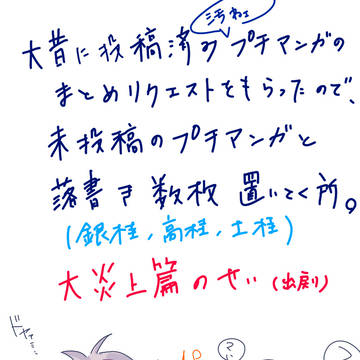 汚ねェ
大昔に投稿済みプチマンガの
まとめリクエストをもらったので、
未投稿のプチマンガと
落書き数枚置いてく所。
(銀桂,高桂,土桂)
大炎上篇のせい(出戻)
ドヤァ…